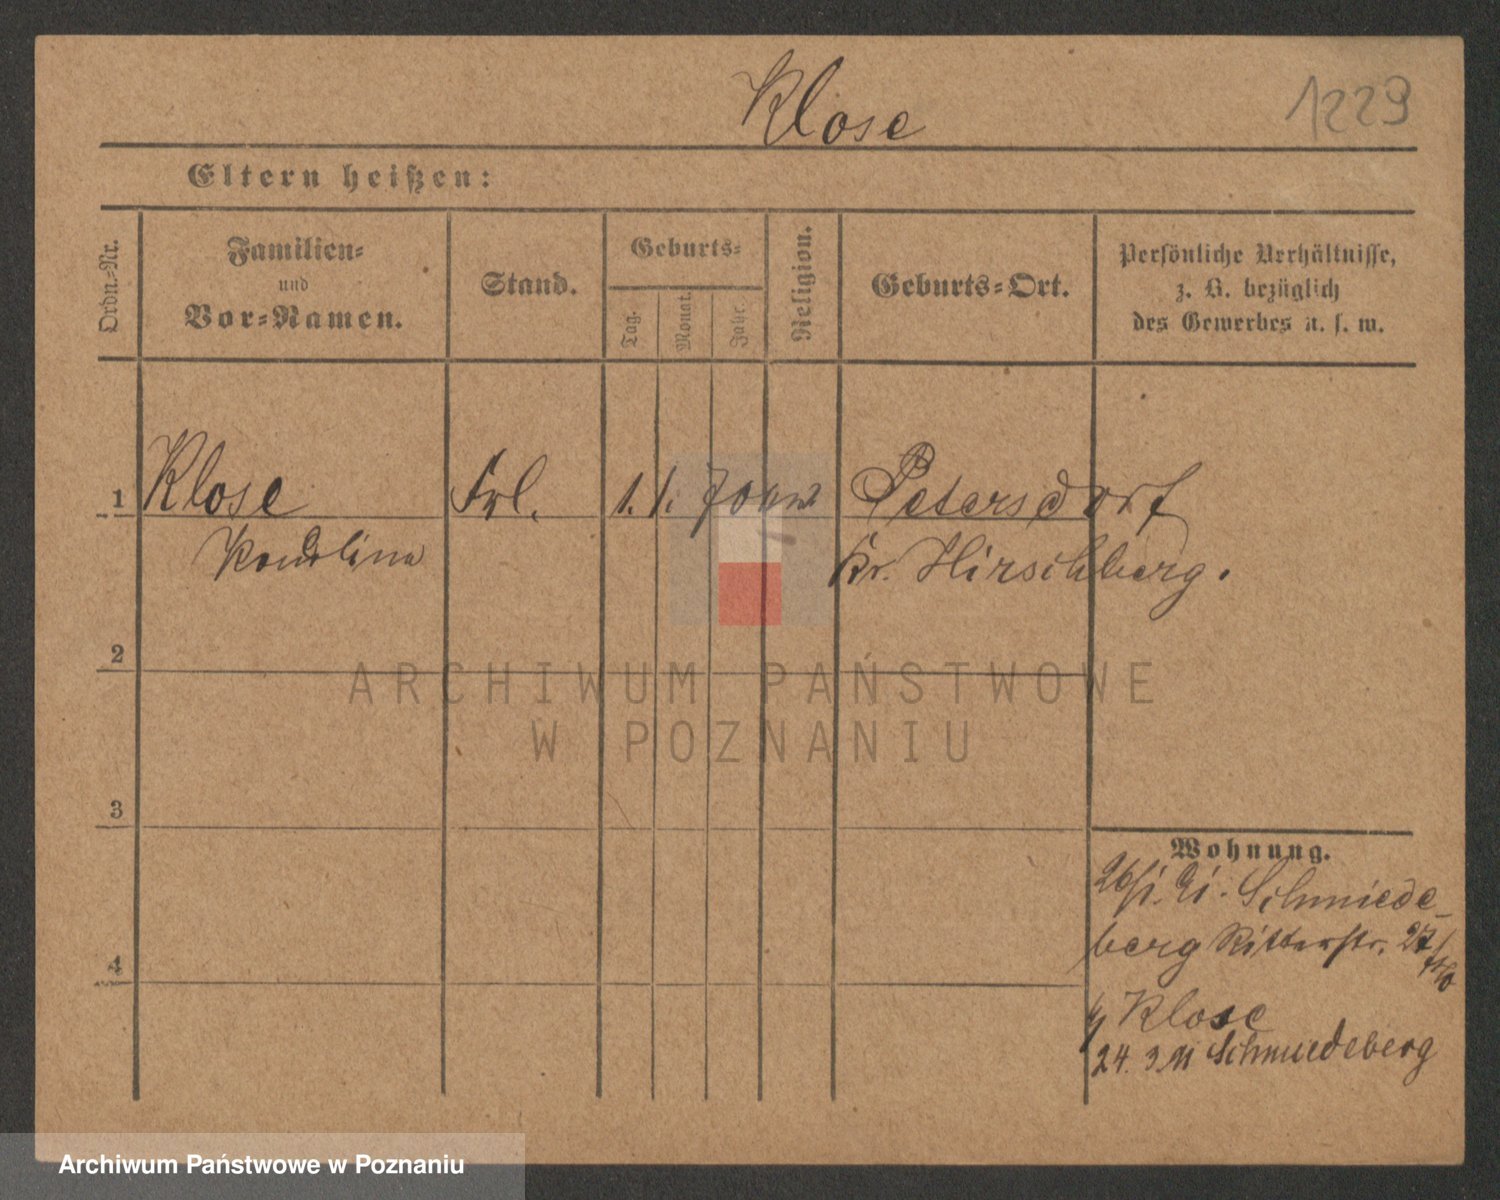 Klose
1229
Eltern heißen:
Ordn.-Nr.
Familien-
und
Vor-Namen.
Stand.
Geburts-
Tag.
Monat.
Jahr.
Religion.
Geburts-Ort.
Persönliche Verhältnisse,
z. B. bezüglich
des Gewerbes u. s. w.
1 Klose Frl. 1. 1. 70 Petersdorf
Kr. Hirschberg.
2
3
4
Wohnung.
Schmiede-
berg Ritterstr. 27
Klose
24. 3. 11 Schmiedeberg
ARCHIWUM PAŃSTWOWE
W POZNANIU
Archiwum Państwowe w Poznaniu